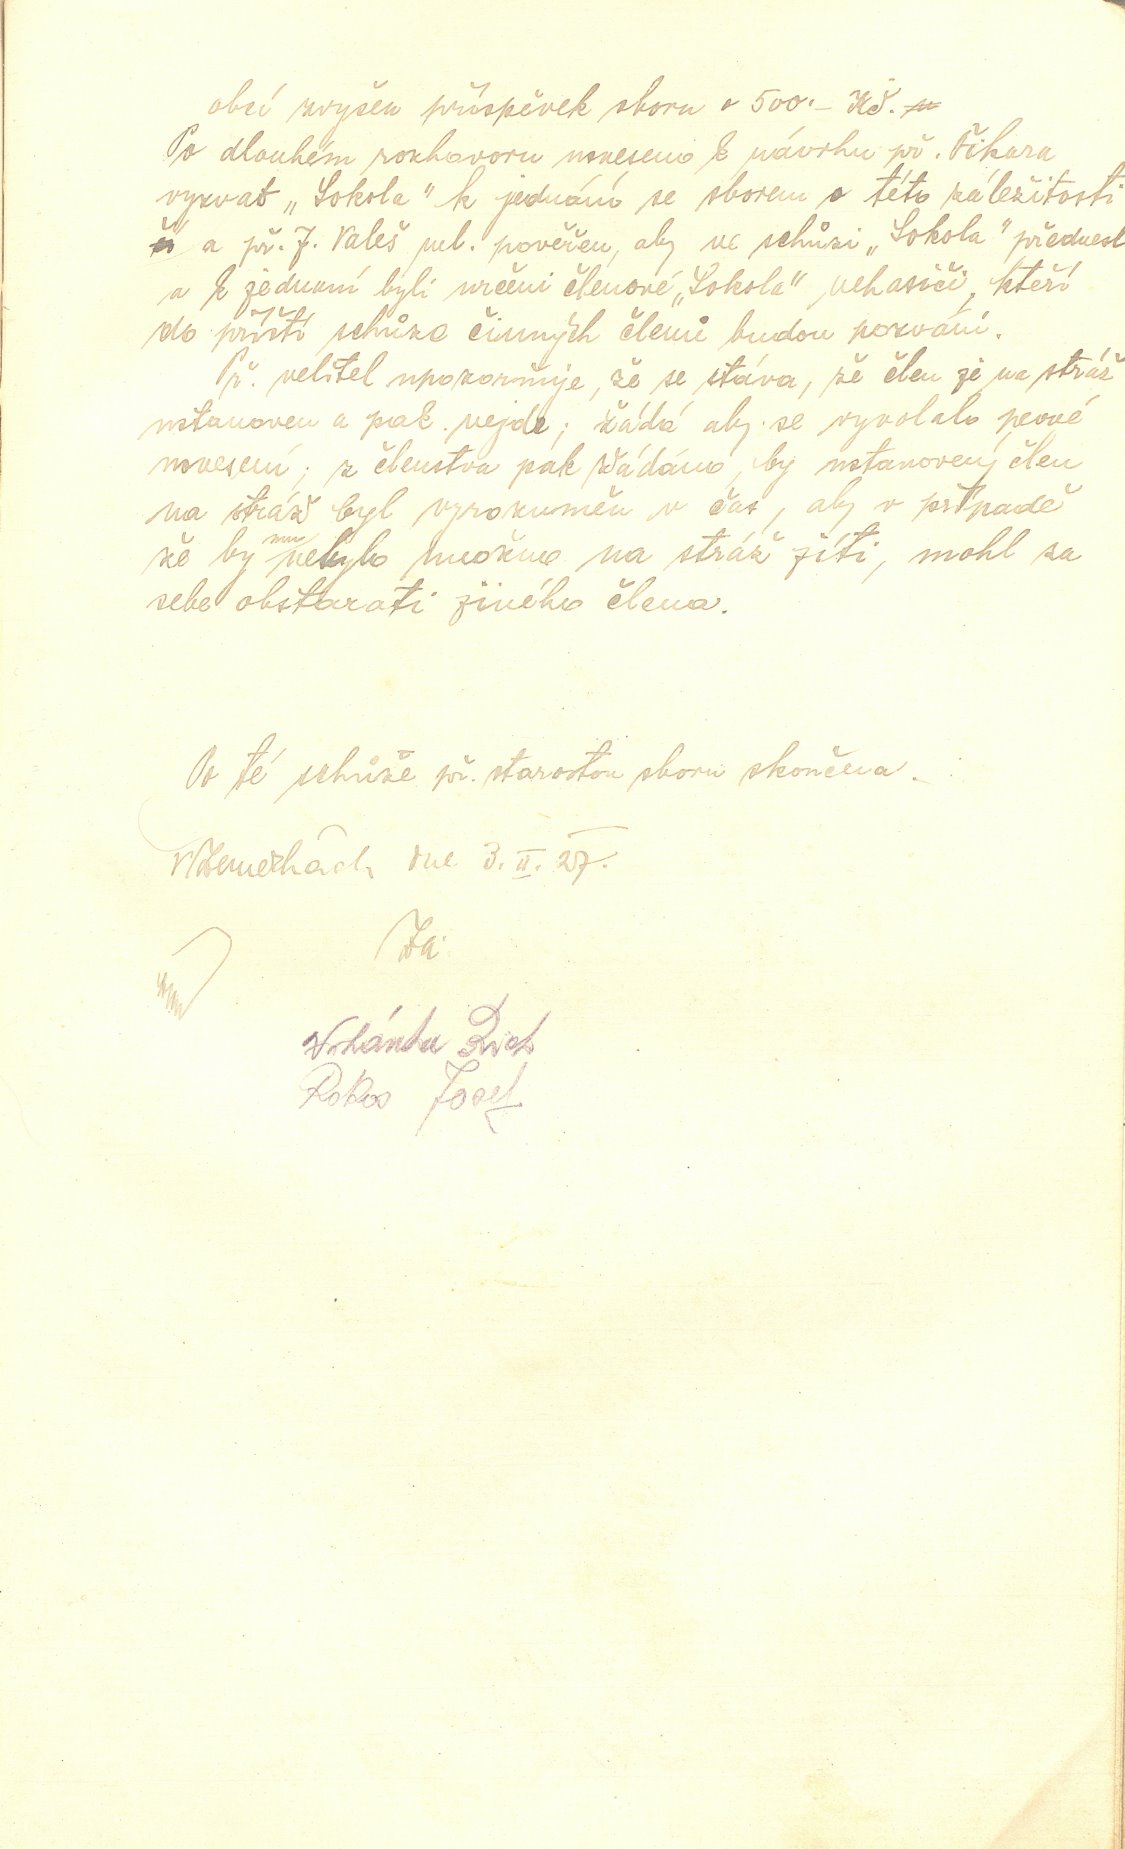 obcí zvýšen příspěvek sboru o 500.– Kč.
Po dlouhém rozhovoru usneseno k návrhu př. Číkara
vyzvat „Sokola" k jednání se sborem o této záležitosti
a př. J. Valeš vel. pověřen, aby ve schůzi „Sokola" přednesl
a k jednaní byli určeni členové „Sokola" nehasiči, kteří
do příští schůze činných členů budou pozváni.
Př. velitel upozorňuje, že se stáva, že člen je na stráž
ustanoven a pak nejde; žádá aby se vyvolalo pevné
usnesení; z členstva pak žádáno, by ustanovený člen
na stráž byl vyrozuměn v čas, aby v případě
že by mu nebylo možno na stráž jíti, mohl za
sebe obstarati jiného člena.
Po té schůze př. starostou sboru skončena.
dne 3. II. 27.
Za:
Josef